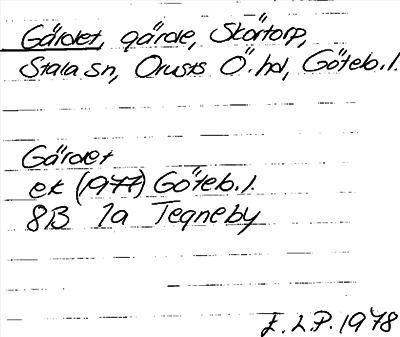 Gärdet, gärde, Skörtorp,
Stala sn, Orusts Ö. hd, Göteb. l.
Gärdet
ek (1977) Göteb. l.
8B 7a Tegneby
E. L. P. 1978